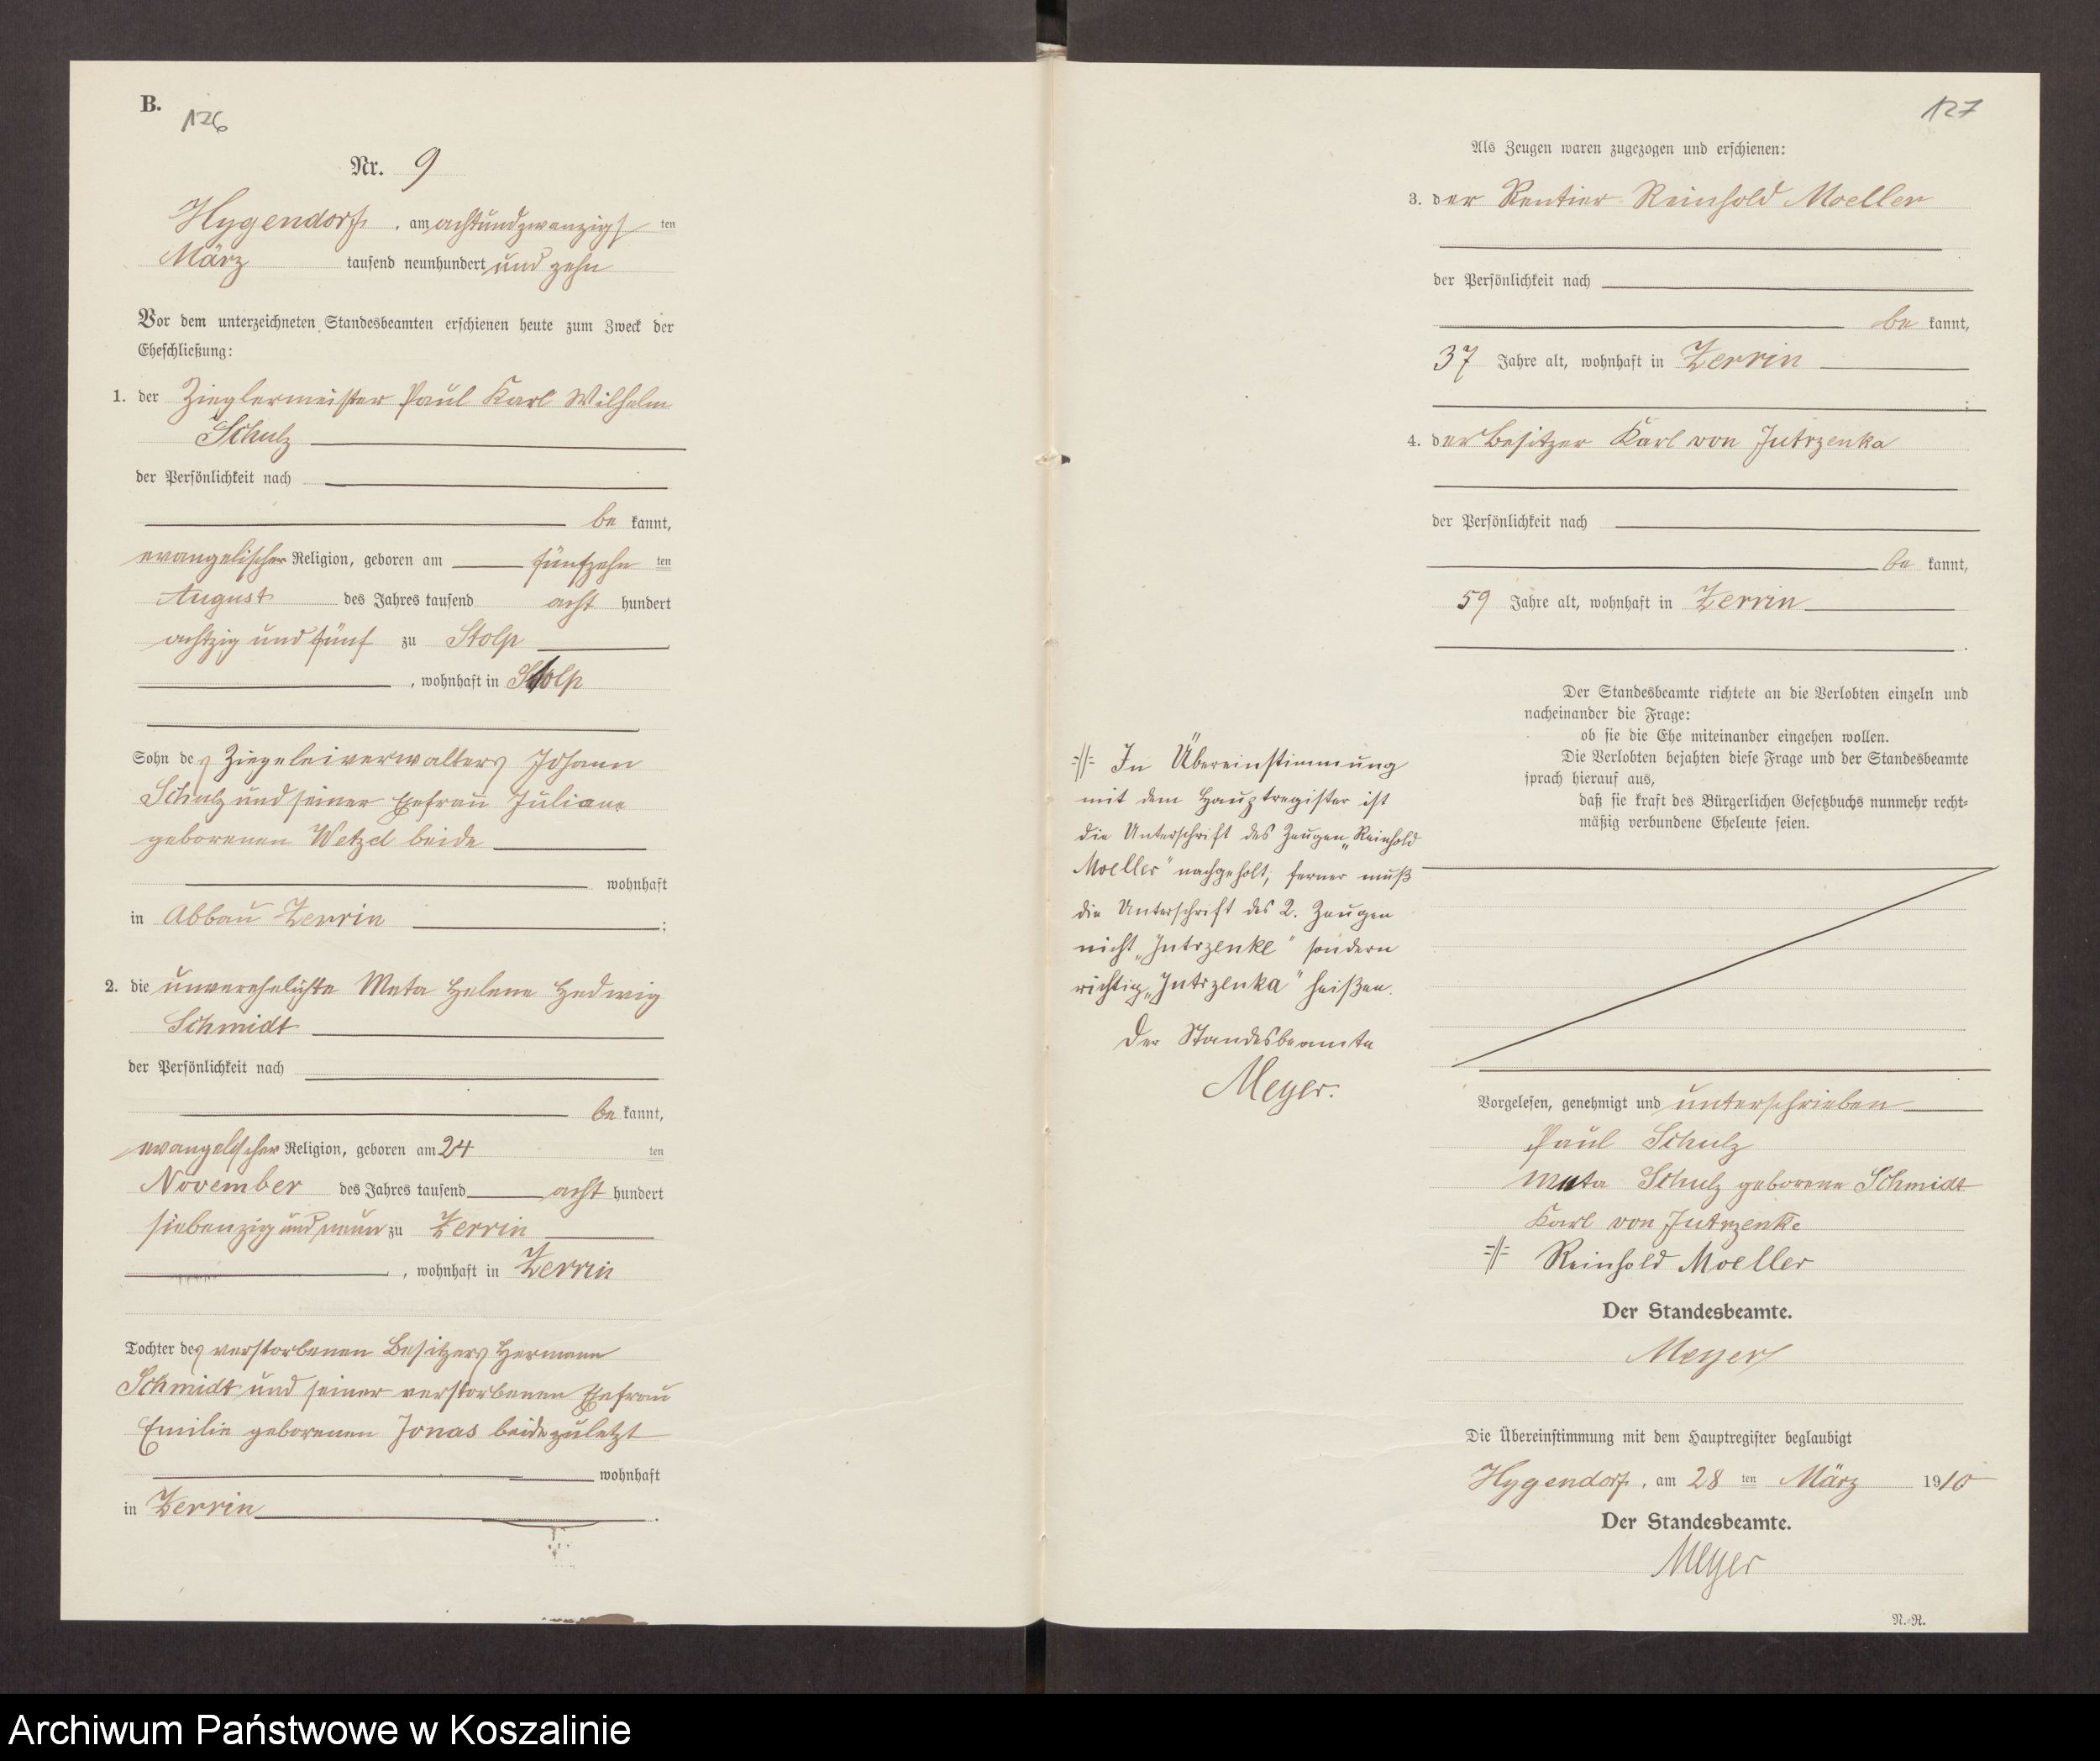 B.
126
Nr. 9
Hygendorf, am achtundzwanzigsten
März tausend neunhundert und zehn
Vor dem unterzeichneten Standesbeamten erschienen heute zum Zweck der
Eheschließung:
1. der Zieglermeister Paul Karl Wilhelm
Schulz
der Persönlichkeit nach
be kannt,
evangelischer Religion, geboren am fünfzehn ten
August des Jahres tausend acht hundert
achtzig und fünf zu Stolp
, wohnhaft in Stolp
Sohn des Ziegeleiverwalters Johann
Schulz und seiner Ehefrau Juliane
geborenen Wetzel beide
wohnhaft
in Abbau Zerrin;
2. die unverehelichte Meta Helene Hedwig
Schmidt
der Persönlichkeit nach
be kannt,
evangelischer Religion, geboren am 24 ten
November des Jahres tausend acht hundert
siebenzig und neun zu Zerrin
, wohnhaft in Zerrin
Tochter des verstorbenen Besitzers Hermann
Schmidt und seiner verstorbenen Ehefrau
Emilie geborenen Jonas beide zuletzt
wohnhaft
in Zerrin.
127
Als Zeugen waren zugezogen und erschienen:
3. der Rentier Reinhold Moeller
der Persönlichkeit nach
be kannt,
37 Jahre alt, wohnhaft in Zerrin
;
4. der Besitzer Karl von Jutrzenka
der Persönlichkeit nach
be kannt,
59 Jahre alt, wohnhaft in Zerrin
.
Der Standesbeamte richtete an die Verlobten einzeln und
nacheinander die Frage:
ob sie die Ehe miteinander eingehen wollen.
Die Verlobten bejahten diese Frage und der Standesbeamte
sprach hierauf aus,
daß sie kraft des Bürgerlichen Gesetzbuchs nunmehr recht-
mäßig verbundene Eheleute seien.
In Übereinstimmung
mit dem Hauptregister ist
die Unterschrift des Zeugen „Reinhold
Moeller" nachgeholt, ferner muß
die Unterschrift des 2. Zeugen
nicht „Jutrzenke" sondern
richtig „Jutrzenka" heißen.
Der Standesbeamte
Meyer.
Vorgelesen, genehmigt und unterschrieben
Paul Schulz
Meta Schulz geborene Schmidt
Karl von Jutrzenke
Reinhold Moeller
Der Standesbeamte.
Meyer
Die Übereinstimmung mit dem Hauptregister beglaubigt
Hygendorf, am 28 ten März 1910
Der Standesbeamte.
Meyer
N.-R.
Archiwum Państwowe w Koszalinie